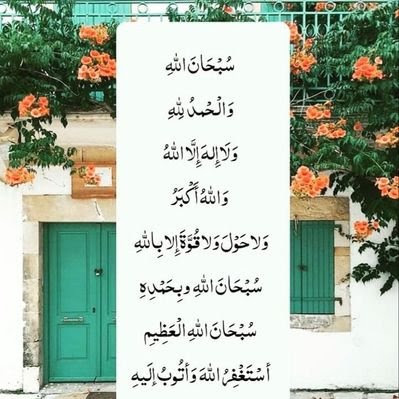 سُبْحَانَ اللهِ
وَالْحَمْدُ لِلهِ
وَلَا إِلهَ إِلَّا اللهُ
وَاللهُ أَكْبَرُ
وَلا حَوْلَ وَلا قُوَّةَ إِلا بِاللهِ
سُبْحَانَ اللهِ وبِحَمْدِهِ
سُبْحَانَ اللهِ الْعَظِيمِ
أسْتَغْفِرُ اللهَ وَأتُوبُ إِلَيهِ